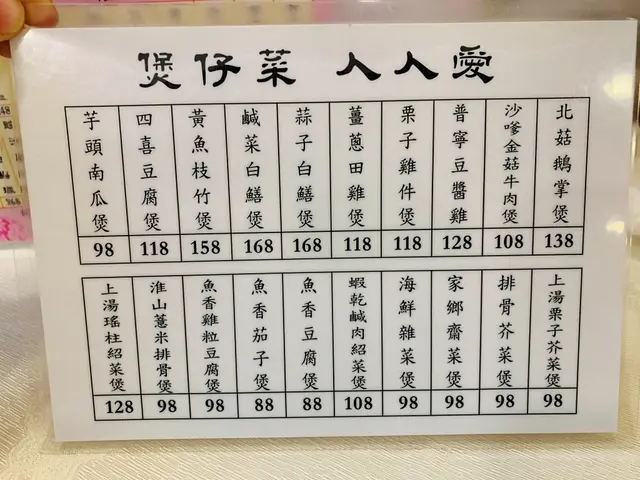 煲仔菜 人人愛
芋頭南瓜煲 98
四喜豆腐煲 118
黃魚枝竹煲 158
鹹菜白鱔煲 168
蒜子白鱔煲 168
薑蔥田雞煲 118
栗子雞件煲 118
普寧豆醬雞 128
沙嗲金菇牛肉煲 108
北菇鵝掌煲 138
上湯瑤柱紹菜煲 128
淮山薏米排骨煲 98
魚香雞粒豆腐煲 98
魚香茄子煲 88
魚香豆腐煲 88
蝦乾鹹肉紹菜煲 108
海鮮雜菜煲 98
家鄉齋菜煲 98
排骨芥菜煲 98
上湯栗子芥菜煲 98